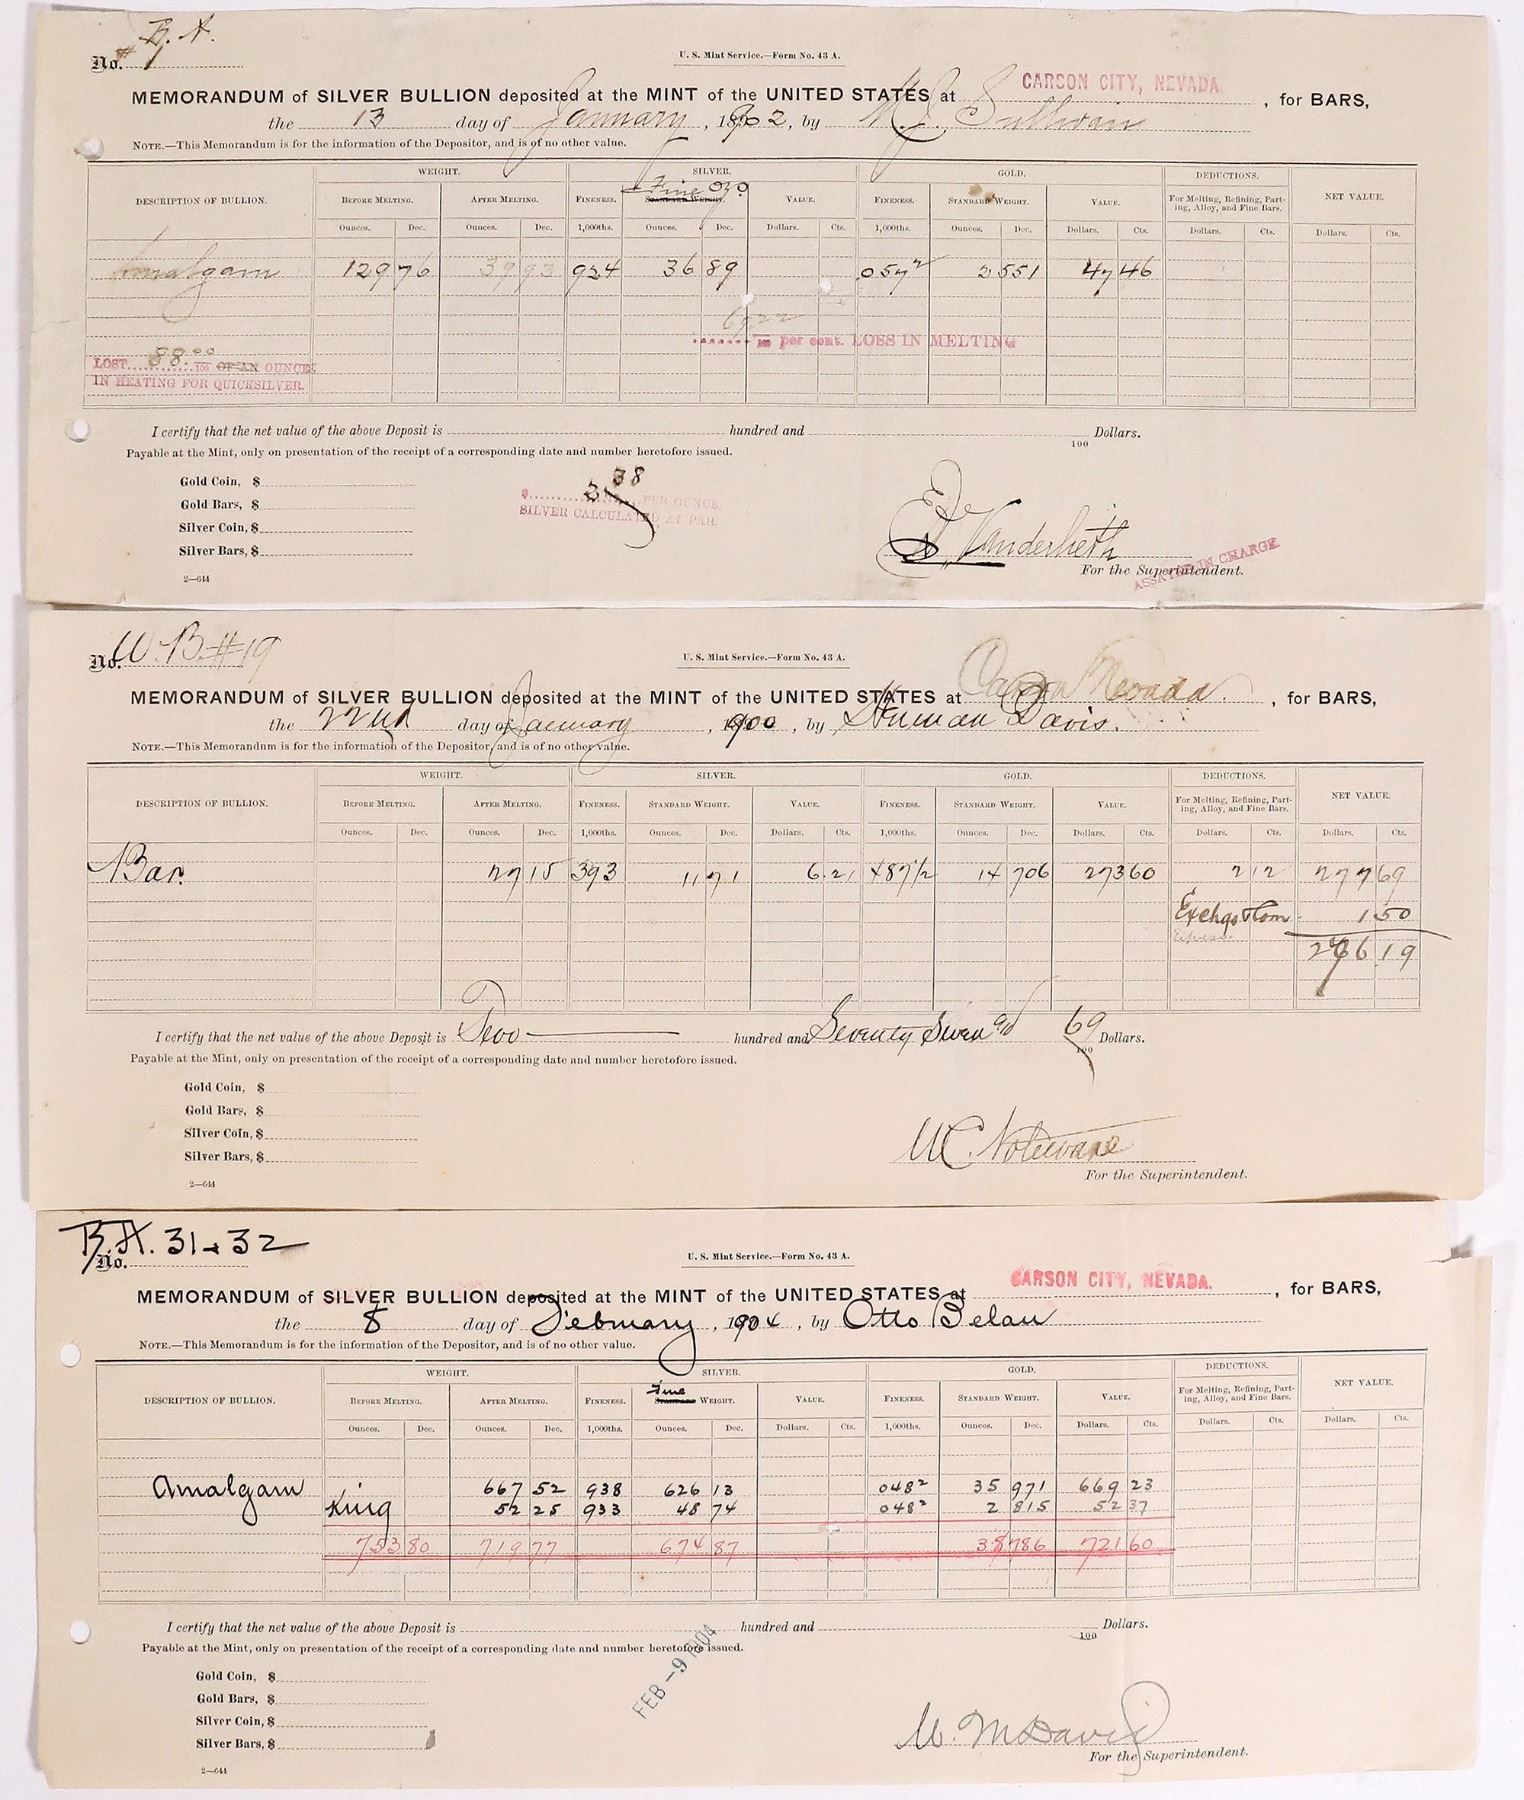 B. A.
No. # 1
U. S. Mint Service.—Form No. 43 A.
CARSON CITY, NEVADA.
MEMORANDUM of SILVER BULLION deposited at the MINT of the UNITED STATES at , for BARS,
the 13 day of January , 1902, by M. J. Sullivan
NOTE.—This Memorandum is for the information of the Depositor, and is of no other value.
WEIGHT. SILVER. GOLD. DEDUCTIONS.
DESCRIPTION OF BULLION. BEFORE MELTING. AFTER MELTING. FINENESS. Fine Ozs STANDARD WEIGHT. VALUE. FINENESS. STANDARD WEIGHT. VALUE. For Melting, Refining, Parting, Alloy, and Fine Bars. NET VALUE.
Ounces. Dec. Ounces. Dec. 1,000ths. Ounces. Dec. Dollars. Cts. 1,000ths. Ounces. Dec. Dollars. Cts. Dollars. Cts. Dollars. Cts.
Amalgam 129 76 39 93 924 36 89 057 2 2 551 47 46
69.22 per cent. LOSS IN MELTING
LOST 88.00 100 OF AN OUNCE
IN HEATING FOR QUICKSILVER.
I certify that the net value of the above Deposit is hundred and 100 Dollars.
Payable at the Mint, only on presentation of the receipt of a corresponding date and number heretofore issued.
Gold Coin, $
Gold Bars, $
Silver Coin, $
Silver Bars, $
$ 3 38 PER OUNCE.
SILVER CALCULATED AT PAR.
Vanderlieth
For the Superintendent.
ASSAYER IN CHARGE
2—644
No. W. B. #19
U. S. Mint Service.—Form No. 43 A.
MEMORANDUM of SILVER BULLION deposited at the MINT of the UNITED STATES at Carson Nevada. , for BARS,
the 22nd day of January , 1900 , by Human Davis.
NOTE.—This Memorandum is for the information of the Depositor, and is of no other value.
WEIGHT. SILVER. GOLD. DEDUCTIONS.
DESCRIPTION OF BULLION. BEFORE MELTING. AFTER MELTING. FINENESS. STANDARD WEIGHT. VALUE. FINENESS. STANDARD WEIGHT. VALUE. For Melting, Refining, Parting, Alloy, and Fine Bars. NET VALUE.
Ounces. Dec. Ounces. Dec. 1,000ths. Ounces. Dec. Dollars. Cts. 1,000ths. Ounces. Dec. Dollars. Cts. Dollars. Cts. Dollars. Cts.
Bar. 27 15 393 11 71 6 21 487 1/2 14 706 273 60 2 12 277 69
Exchge & Com 1 50
276 19
I certify that the net value of the above Deposit is Two hundred and Seventy Seven and 69 100 Dollars.
Payable at the Mint, only on presentation of the receipt of a corresponding date and number heretofore issued.
Gold Coin, $
Gold Bars, $
Silver Coin, $
Silver Bars, $
For the Superintendent.
2—644
B. A. 31 + 32
No.
U. S. Mint Service.—Form No. 43 A.
CARSON CITY, NEVADA.
MEMORANDUM of SILVER BULLION deposited at the MINT of the UNITED STATES at , for BARS,
the 8 day of February , 1904 , by Otto Belau
NOTE.—This Memorandum is for the information of the Depositor, and is of no other value.
WEIGHT. SILVER. GOLD. DEDUCTIONS.
DESCRIPTION OF BULLION. BEFORE MELTING. AFTER MELTING. FINENESS. Fine STANDARD WEIGHT. VALUE. FINENESS. STANDARD WEIGHT. VALUE. For Melting, Refining, Parting, Alloy, and Fine Bars. NET VALUE.
Ounces. Dec. Ounces. Dec. 1,000ths. Ounces. Dec. Dollars. Cts. 1,000ths. Ounces. Dec. Dollars. Cts. Dollars. Cts. Dollars. Cts.
Amalgam 667 52 938 626 13 048 2 35 971 669 23
King 52 25 933 48 74 048 2 2 815 52 37
753 80 719 77 674 87 38 786 721 60
I certify that the net value of the above Deposit is hundred and 100 Dollars.
Payable at the Mint, only on presentation of the receipt of a corresponding date and number heretofore issued.
Gold Coin, $
Gold Bars, $
Silver Coin, $
Silver Bars, $
FEB -9 1904
M. M Davis
For the Superintendent.
2—644